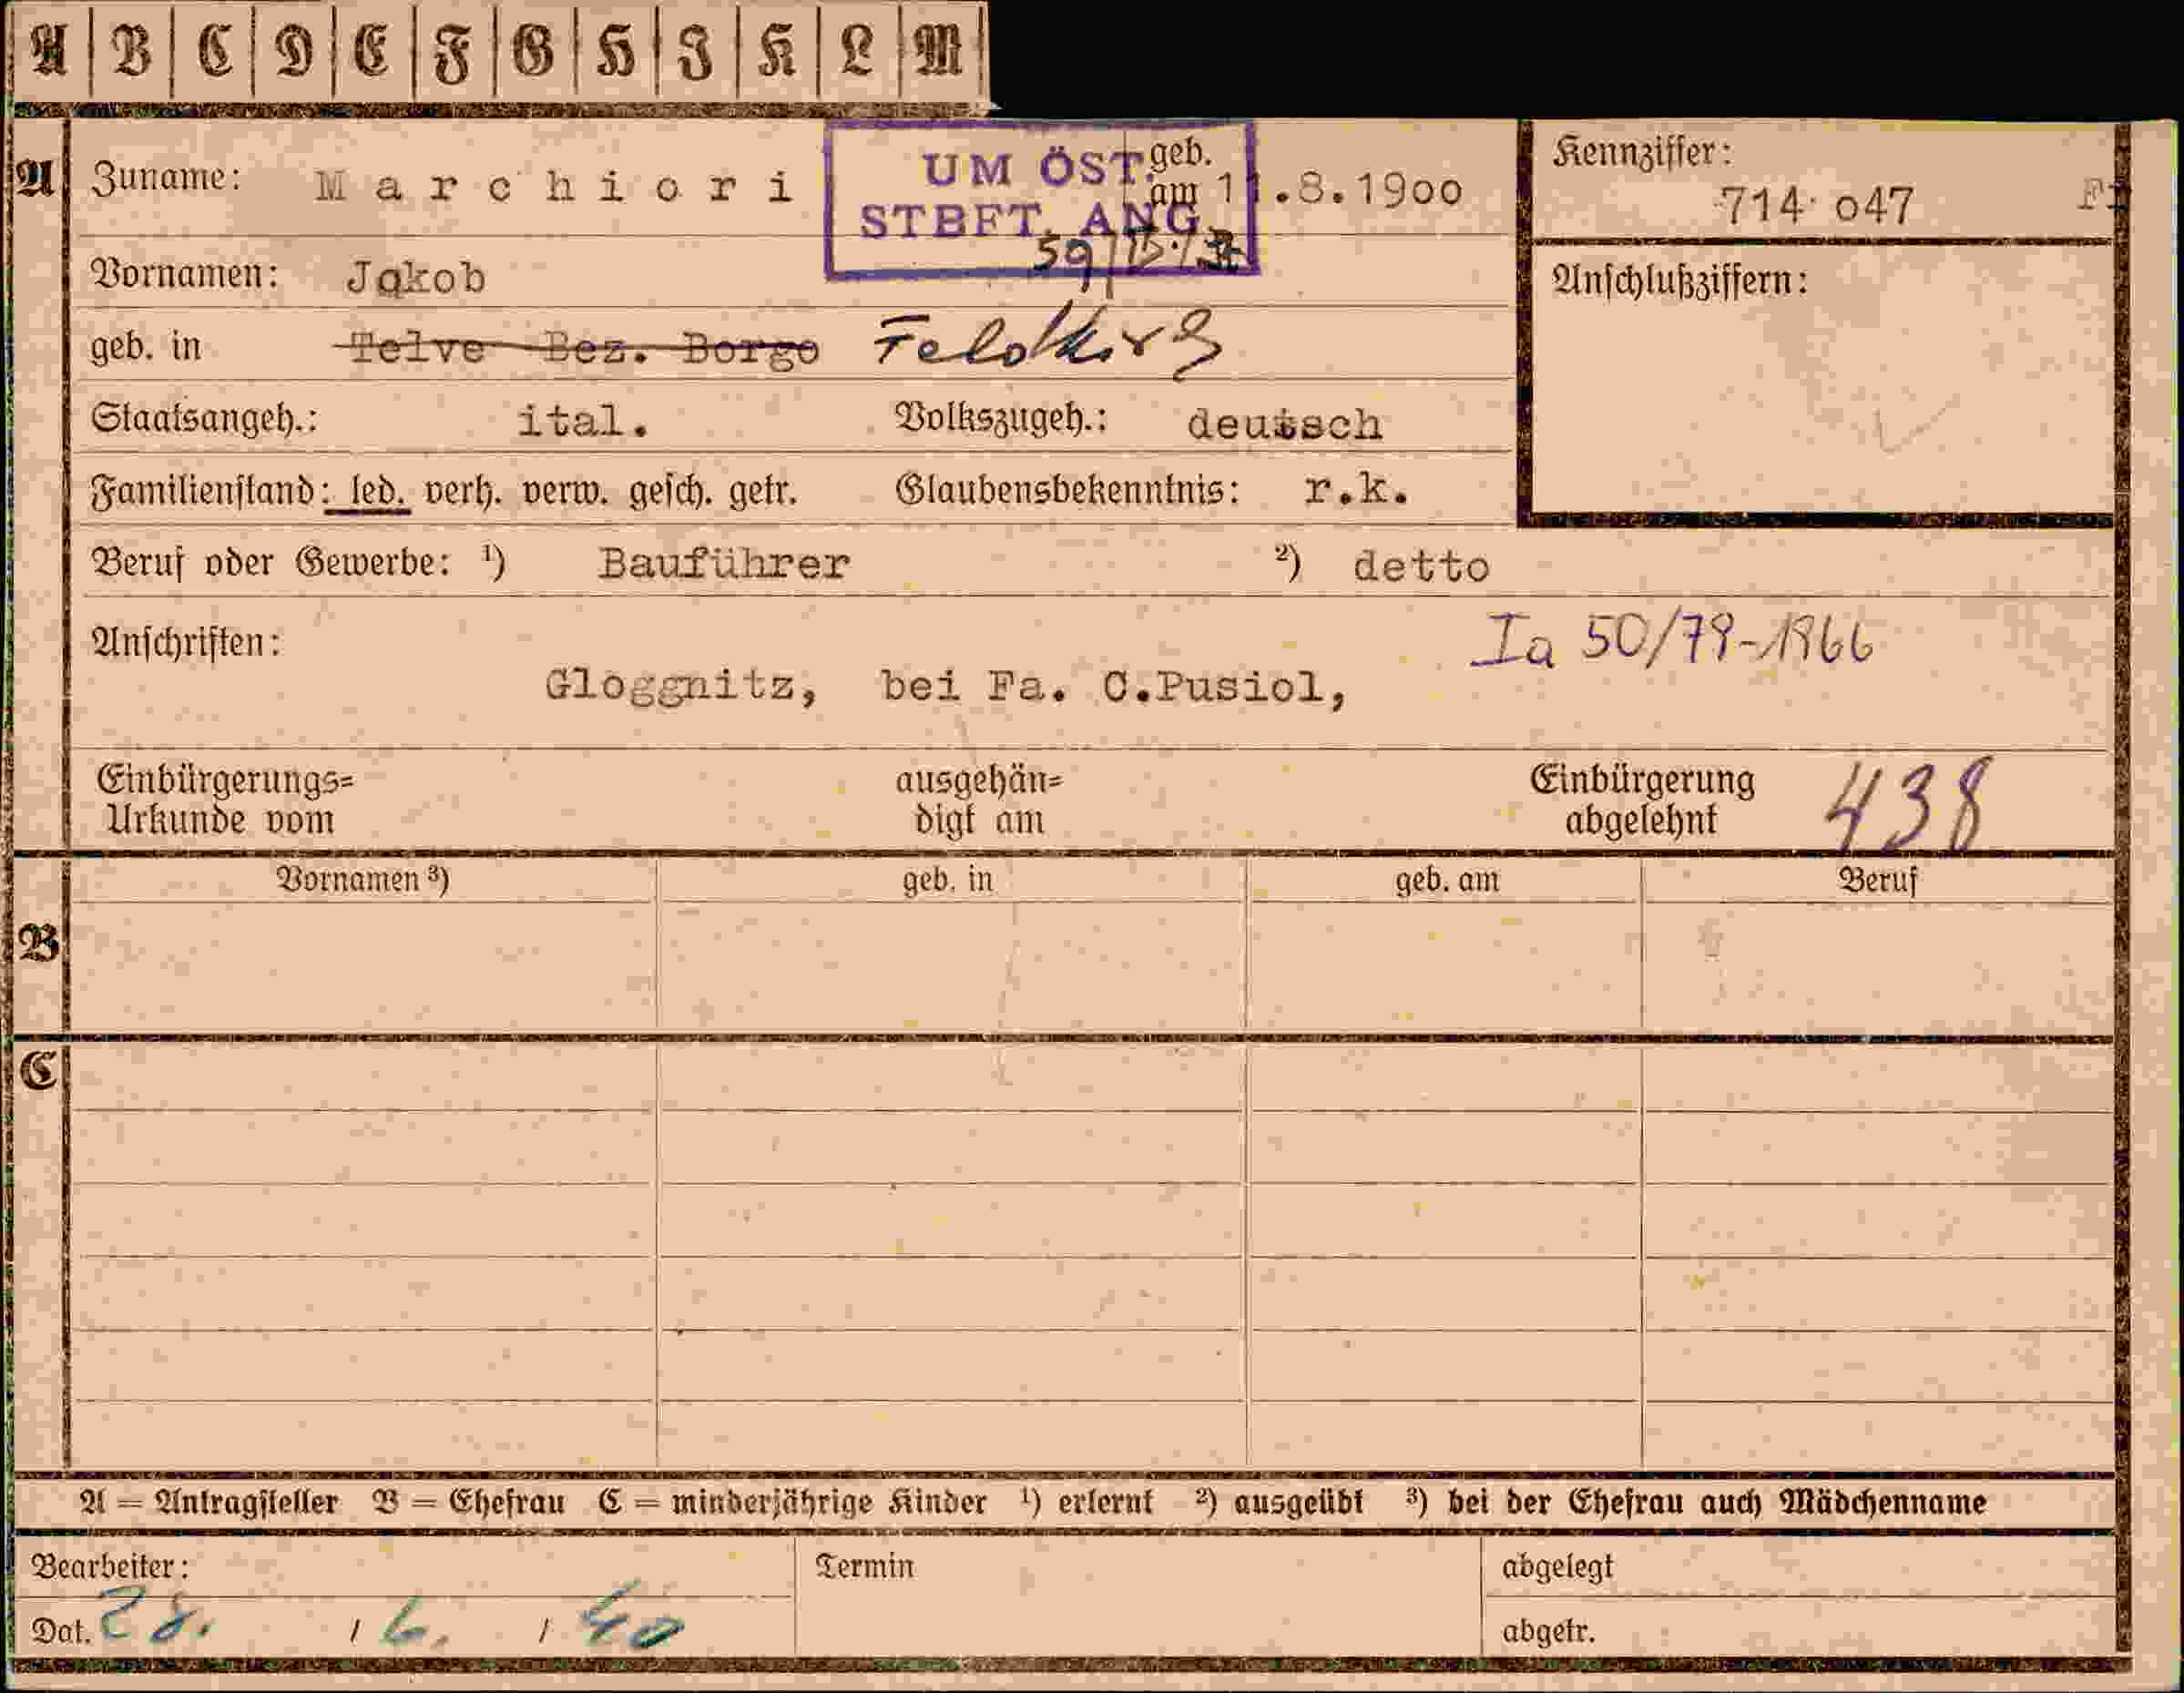 A B C D E F G H J K L M
A Zuname: Marchiori geb. am 11.8.1900
UM ÖST.
STBFT. ANG.
Kennziffer:
714 047
Vornamen: Jakob
Anschlußziffern:
geb. in Telve Bez. Borgo Feldkirch
Staatsangeh.: ital. Volkszugeh.: deutsch
Familienstand: led. verh. verw. gesch. getr. Glaubensbekenntnis: r.k.
Beruf oder Gewerbe: ¹) Bauführer ²) detto
Anschriften: Ia 50/79-1966
Gloggnitz, bei Fa. C.Pusiol,
Einbürgerungs= ausgehän= Einbürgerung
Urkunde vom digt am abgelehnt 438
Vornamen ³) geb. in geb. am Beruf
B
C
A = Antragsteller B = Ehefrau C = minderjährige Kinder ¹) erlernt ²) ausgeübt ³) bei der Ehefrau auch Mädchenname
Bearbeiter: Termin abgelegt
Dat. 28. / 6. / 40 abgetr.